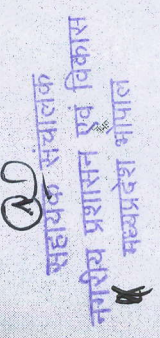 सहायक संचालक
नगरीय प्रशासन एवं विकास
मध्यप्रदेश भोपाल